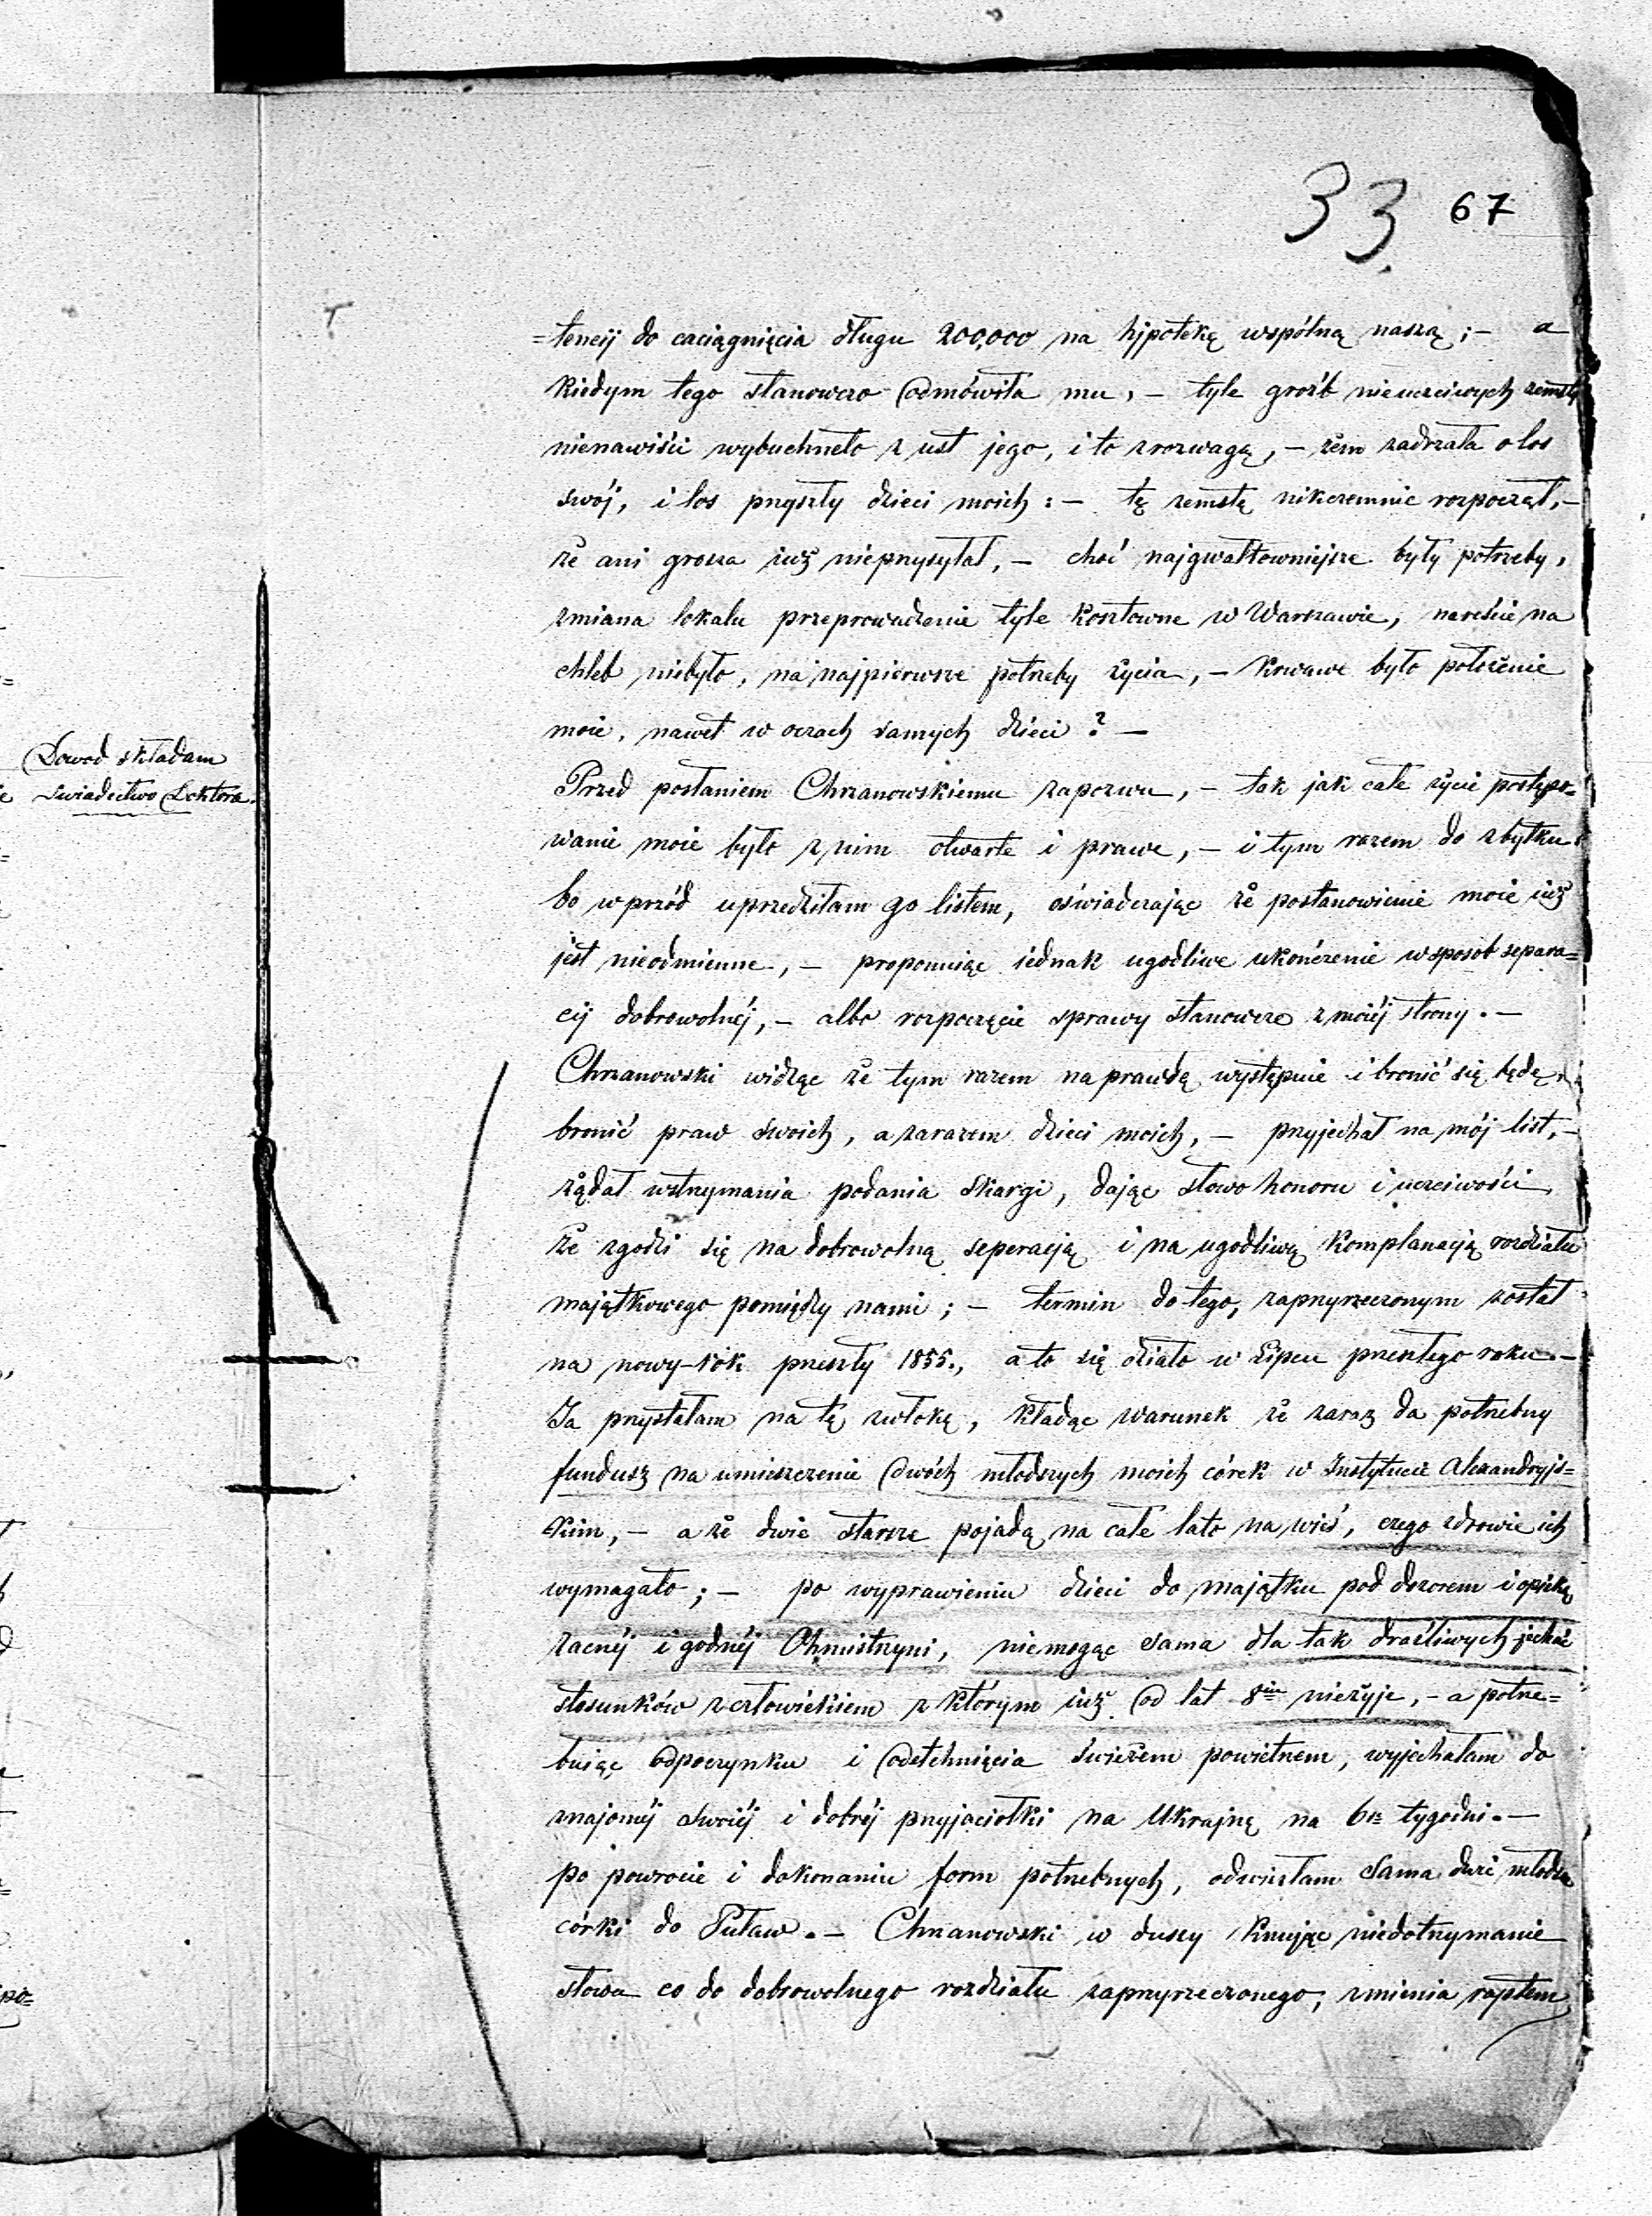 33. 67
=tencij do caciągnięcia długu 200,000 na hjpotekę wspólną naszą ;— a
kiedym tego stanowczo odmówiła mu, — tyle gróźb nieuczciwych zemsty
nienawiści wybuchneło z ust jego, i to z rozwagą, — żem zadrżała o los
swój, i los przyszły dzieci moich : — tę zemstę nikczemnie rozpoczął, —
że ani grosza iuż nieprzysyłał, — choć najgwałtowniejsze były potrzeby,
zmiana lokalu przeprowadzenie tyle kosztowne w Warszawie, nareście na
chleb niebyło, na najpierwsze potrzeby życia, — krwawe było położenie
moie, nawet w oczach samych dzieci ? —
Przed posłaniem Chrzanowskiemu zapozwu, — tak jak całe życie postępo=
wanie moie było z nim otwarte i prawe, — i tym razem do zbytku
bo wprzód uprzedziłam go listem, oświadczając że postanowienie moie iuż
jest nieodmienne, — proponuiąc iednak ugodliwe ukończenie w sposób separa=
cij dobrowolnéj, — albo rozpoczęcie sprawy stanowcze z moiéj strony. —
Chrzanowski widząc że tym razem na prawdę wystąpię i bronić się będę,
bronić praw swoich, a zarazem dzieci moich, — przyjechał na mój list, —
żądał wstrzymania podania skargi, dając słowo honoru i uczciwości
że zgodzi się na dobrowolną seperacją i na ugodliwą komplanacją rozdziału
majątkowego pomiędzy nami ; — termin do tego, zaprzyrzeczonym został
na nowy-rók przeszły 1855., a to się działo w Lipcu przeszłego roku. —
Ja przystałam na tę zwłokę, kładąc warunek że zaraz da potrzebny
fundusz na umieszczenie dwóch młodszych moich córek w Instytucie Alexandryjs=
kim, — a że dwie starsze pojadą na całe lato na wieś, czego zdrowie ich
wymagało ; — po wyprawieniu dzieci do majątku pod dozorem i opieką
zacnéj i godnéj Ochmistrzyni, niemogąc sama dla tak draźliwych jechać
stosunków z człowiekiem z którym iuż od lat 8iu nieżyje, — a potrze=
buiąc odpoczynku i odetchnięcia świeżem powietrzem, wyjechałam do
znajoméj swoiéj i dobréj przyjaciołki na Ukrajnę na 6ść tygodni. —
po powrocie i dokonaniu form potrzebnych, odwiozłam sama dwie młodsze
córki do Puław. — Chrzanowski w duszy knując niedotrzymanie
słowa co do dobrowolnego rozdziału zaprzyrzeczonego, zmienia raptem
Dowod składam
świadectwo Doktora.